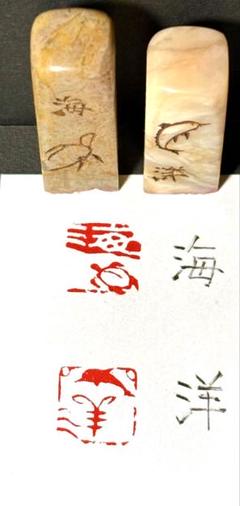 海
洋
海
洋